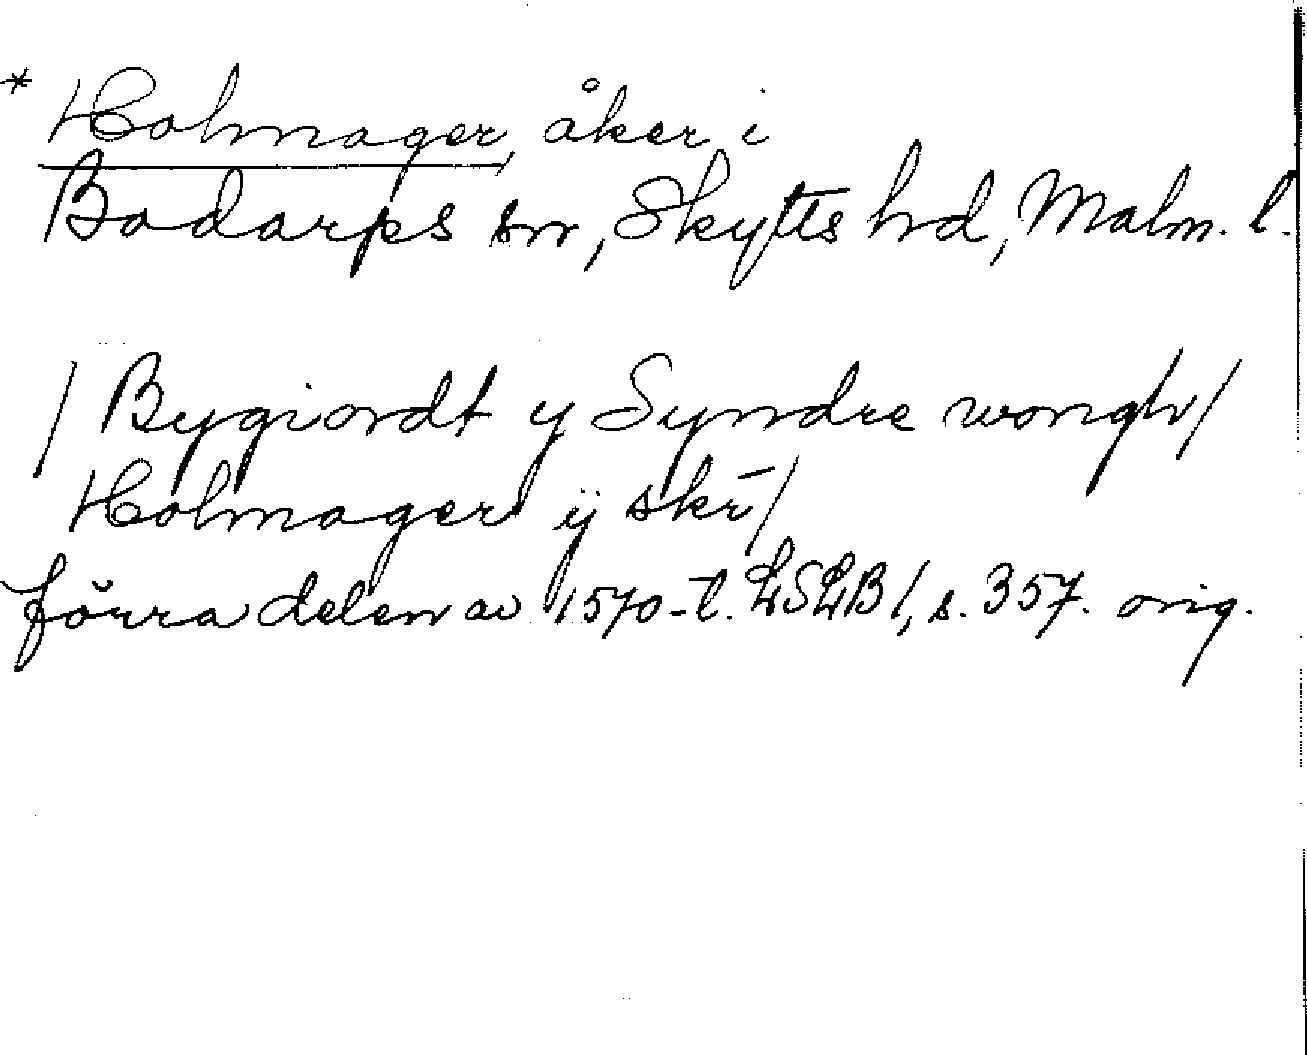 * Holmager, åker i
Bodarps sn, Skytts hd, Malm. l.
/ Bygiordt y Syndre wongh/
Holmager ÿ skr̄/
förra delen av 1570-t. LSLB 1, s. 357. orig.